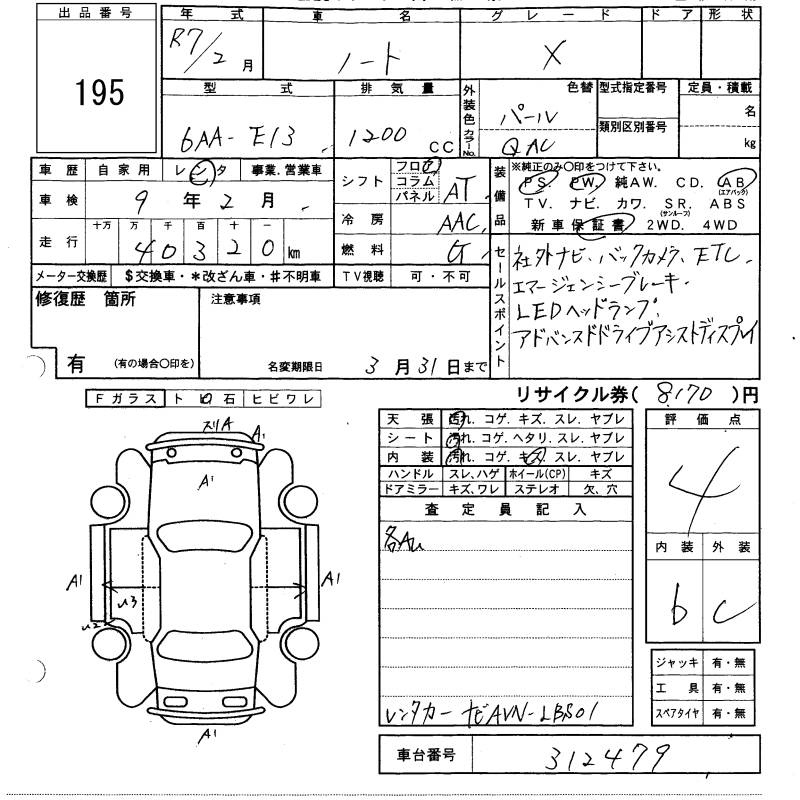 出品番号
195
年式 車名 グレード ドア 形状
R7/2月 ノート X
型式 排気量 外装色 色替 型式指定番号 定員・積載
6AA-E13 1200 CC パール 名
カラーNo. QAC 類別区別番号 kg
車歴 自家用 レンタ 事業.営業車
車検 9年2月
走行 十万 万 千 百 十
40320km
メーター交換歴 $交換車・*改ざん車・#不明車
シフト フロア コラム パネル AT
冷房 AAC
燃料 G
TV視聴 可・不可
装備品 ※純正のみ○印をつけて下さい。
PS. PW. 純AW. CD. AB(エアバック)
TV. ナビ. カワ. SR.(サンルーフ) ABS
新車保証書 2WD. 4WD
セールスポイント
社外ナビ、バックカメラ、ETC、
エマージェンシーブレーキ・
LEDヘッドランプ・
アドバンスドドライブアシストディスプレイ
修復歴 箇所 注意事項
有 (有の場合○印を) 名変期限日 3月31日まで
リサイクル券(8170)円
Fガラス トビ石 ヒビワレ
スリA
A1
A1
A1
A1
U3
U2
A1
天張 汚れ. コゲ. キズ. スレ. ヤブレ
シート 汚れ. コゲ. ヘタリ. スレ. ヤブレ
内装 汚れ. コゲ. キズ. スレ. ヤブレ
ハンドル スレ、ハゲ ホイール(CP) キズ
ドアミラー キズ、ワレ ステレオ 欠、穴
査定員記入
各AU
レンタカー ナビAVN-LBS01
評価点
4
内装 外装
b C
ジャッキ 有・無
工具 有・無
スペアタイヤ 有・無
車台番号 312479